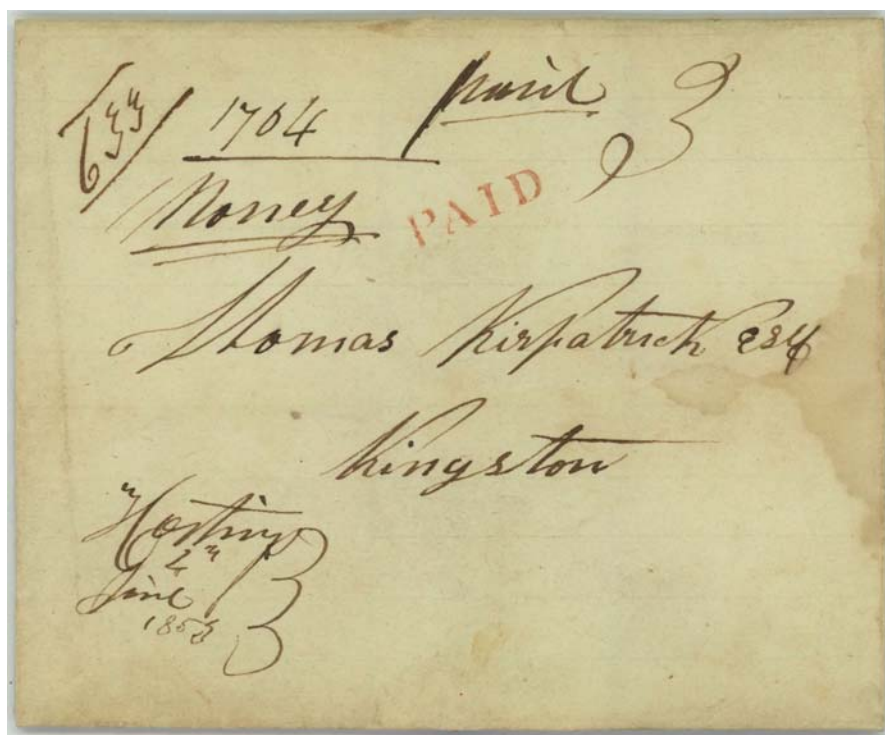 1704 paid 3
Money
PAID
Thomas Kirkpatrick Esq
Kingston
Hastings
4th
June
185